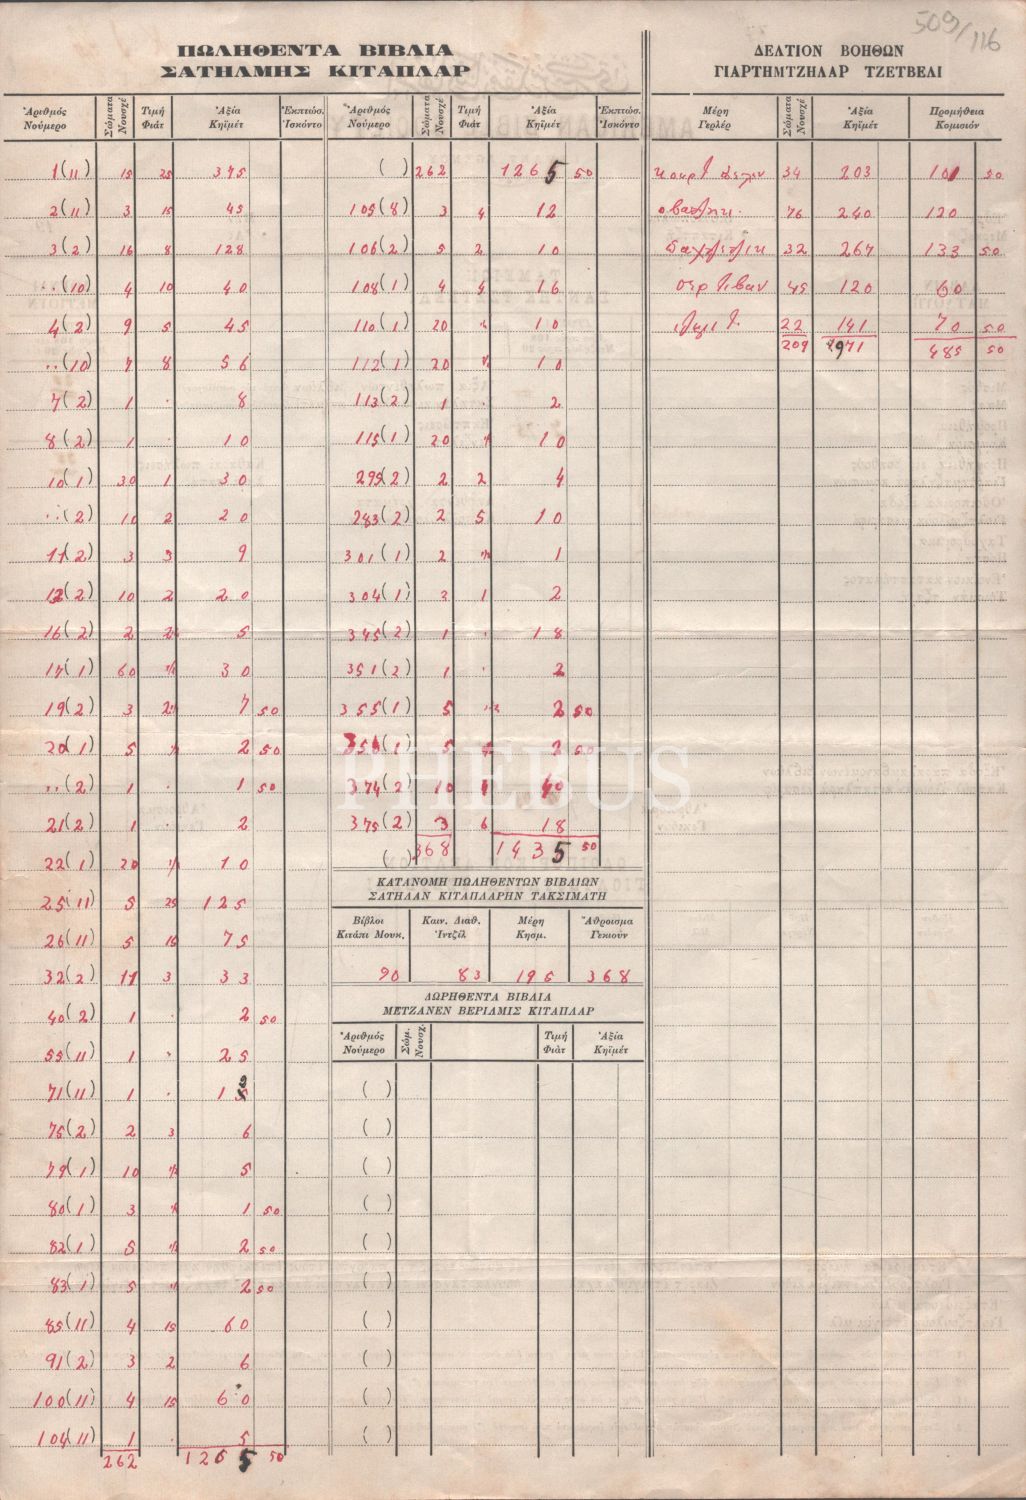 509/116
ΠΩΛΗΘΕΝΤΑ ΒΙΒΛΙΑ
ΣΑΤΗΛΜΗΣ ΚΙΤΑΠΛΑΡ
Ἀριθμός Νούμερο Σώματα Νουσχέ Τιμή Φιάτ Ἀξία Κηϊμέτ Ἐκπτώσ. Ἰσκόντο
1(11) 15 25 375
2(11) 3 15 45
3(2) 16 8 128
..(10) 4 10 40
4(2) 9 5 45
..(10) 7 8 56
7(2) 1 . 8
8(2) 1 . 10
10(1) 30 1 30
..(2) 10 2 20
11(2) 3 3 9
12(2) 10 2 20
16(2) 2 5
17(1) 60 30
19(2) 3 7 50
20(1) 5 2 50
..(2) 1 . 1 50
21(2) 1 . 2
22(1) 20 10
25(11) 5 25 125
26(11) 5 15 75
32(2) 11 3 33
40(2) 1 . 2 50
55(11) 1 . 25
71(11) 1 .
75(2) 2 3 6
79(1) 10 5
80(1) 3 1 50
82(1) 5 2 50
83(1) 5 2 50
85(11) 4 15 60
91(2) 3 2 6
100(11) 4 15 60
104(11) 1 . 5
262 1265 50
Ἀριθμός Νούμερο Σώματα Νουσχέ Τιμή Φιάτ Ἀξία Κηϊμέτ Ἐκπτώσ. Ἰσκόντο
( ) 262 1265 50
105(8) 3 4 12
106(2) 5 2 10
108(1) 4 4 16
110(1) 20 10
112(1) 20 10
113(2) 1 . 2
115(1) 20 10
295(2) 2 2 4
283(2) 2 5 10
301(1) 2 1
304(1) 2 1 2
345(2) 1 . 18
351(2) 1 . 2
355(1) 5 2 50
356(1) 5 2 50
374(2) 10 4 40
375(2) 3 6 18
( ) 368 1435 50
ΚΑΤΑΝΟΜΗ ΠΩΛΗΘΕΝΤΩΝ ΒΙΒΛΙΩΝ
ΣΑΤΗΛΑΝ ΚΙΤΑΠΛΑΡΗΝ ΤΑΚΣΙΜΑΤΗ
Βίβλοι Καιν. Διαθ. Μέρη Ἄθροισμα
Κιτάπι Μουκ. Ἰντζίλ Κησμ. Γεκιούν
90 83 195 368
ΔΩΡΗΘΕΝΤΑ ΒΙΒΛΙΑ
ΜΕΤΖΑΝΕΝ ΒΕΡΙΛΜΙΣ ΚΙΤΑΠΛΑΡ
Ἀριθμός Νούμερο Σώμ. Νουσχ. Τιμή Φιὰτ Ἀξία Κηϊμέτ
( )
( )
( )
( )
( )
( )
( )
( )
( )
( )
ΔΕΛΤΙΟΝ ΒΟΗΘΩΝ
ΓΙΑΡΤΗΜΤΖΗΛΑΡ ΤΖΕΤΒΕΛΙ
Μέρη Γερλέρ Σώματα Νουσχέ Ἀξία Κηϊμέτ Προμήθεια Κομισιόν
34 203 101 50
76 240 120
32 267 133 50
45 120 60
22 141 70 50
209 971 485 50
PHEBUS